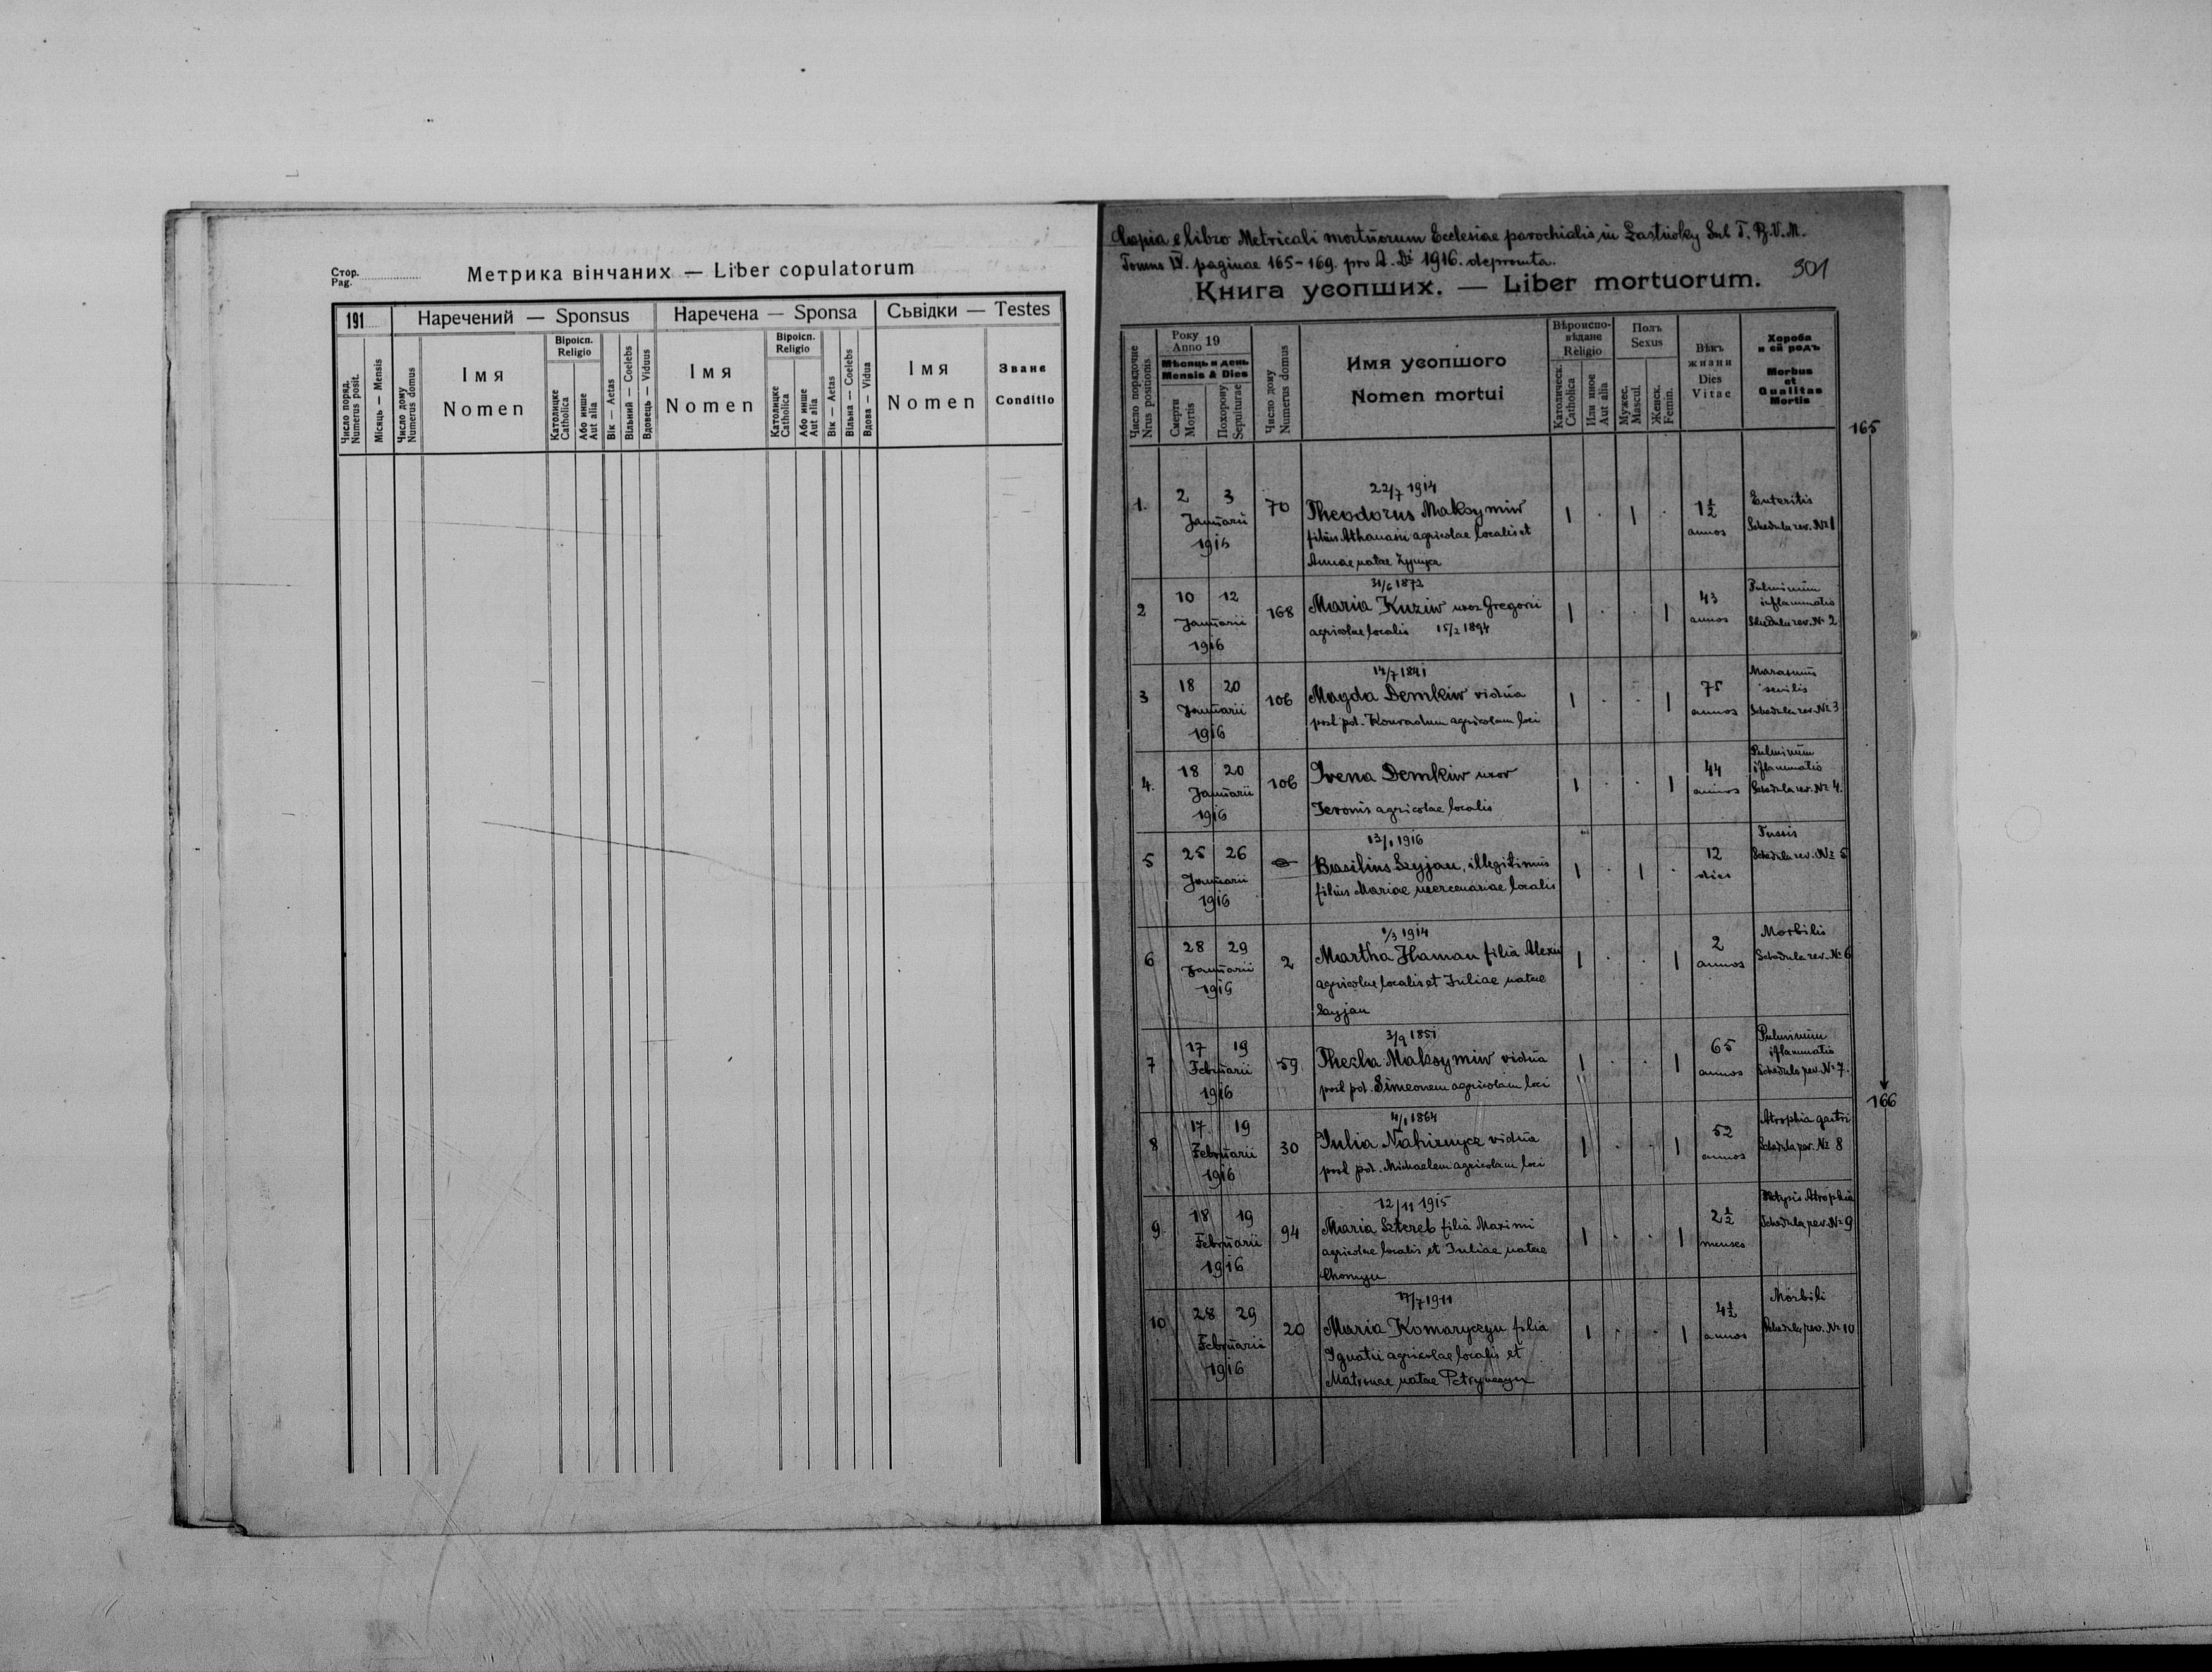 Стор.
Pag.
Метрика вінчаних — Liber copulatorum
191
Наречений — Sponsus
Наречена — Sponsa
Сьвідки — Testes
Число поряд.
Numerus posit.
Місяць — Mensis
Число дому
Numerus domus
Імя
Nomen
Віроісп.
Religio
Католицке
Catholica
Або инше
Aut alia
Вік — Aetas
Вільний — Coelebs
Вдовець — Viduus
Імя
Nomen
Віроісп.
Religio
Католицке
Catholica
Або инше
Aut alia
Вік — Aetas
Вільна — Coelebs
Вдова — Vidua
Імя
Nomen
Званє
Conditio
Copia e libro Metricali mortuorum Ecclesiae parochialis in Lastiwky Sub T. B.V.M.
Tomus IV. paginae 165-169. pro A. Di 1916. deprompta.
301
Книга усопших. — Liber mortuorum.
Число порядочне
Nrus positionis
Року
Anno 19
Мѣсяць и день
Mensis & Dies
Смерти
Mortis
Похорону
Sepulturae
Число дому
Numerus domus
Имя усопшого
Nomen mortui
Вѣроиспо-
вѣдане
Religio
Католическ.
Catholica
Или иное
Aut alia
Полъ
Sexus
Мужес.
Mascul.
Женск.
Femin.
Вѣкъ
жизни
Dies
Vitae
Хороба
и єй родъ
Morbus
et
Qualitas
Mortis
165
22/7 1914
1. 2 3 70 Theodorus Maksymiw 1 . 1 . 1½ Enteritis
Januarii filius Athanasii agricolae localis et annos Schedula rev. № 1
1916 Annae natae
31/6 1872
2 10 12 168 Maria Kuziw uxor Gregorii 1 . . 1 43 Pulminum
inflammatio
Januarii agricolae localis 15/2 1894 annos Schedula rev. № 2
1916
14/7 1841
3 18 20 106 Magda Demkiw vidua 1 . . 1 75 Marasmus
senilis
Januarii post pd. Konradum agricolam loci annos Schedula rev. № 3
1916
4. 18 20 106 Irena Demkiw uxor 1 . . 1 44 Pulminum
iflammatio
Januarii Jeronis agricolae localis annos Schedula rev. № 4.
1916
13/1 1916
5 25 26 Basilius Szyjan, illegitimus 1 . 1 . 12 Tussis
Januarii filius Mariae mercenariae localis dies Schedula rev. № 5
1916
1/3 1914
6 28 29 2 Martha Haman filia Alexii 1 . . 1 2 Morbilis
Januarii agricolae localis et Juliae natae annos Schedula rev. № 6
1916 Szyjan
3/9 1851
7 17 19 59 Thekla Maksymiw vidua 1 . . 1 65 Pulminum
iflammatio
Februarii post pd. Simeonem agricolam loci annos Schedula rev. № 7.
1916
166
4/1 1864
8 17 19 30 Julia Nahirnycz vidua 1 . . 1 52 Atrophia gastri
Februarii post pd. Michaelem agricolam loci annos Schedula rev. № 8
1916
12/11 1915
9. 18 19 94 Maria Sztereb filia Maximi 1 . . 1 2½ Atrophia
Februarii agricolae localis et Juliae natae menses Schedula rev. № 9
1916 Chomyn
17/7 1911
10 28 29 20 Maria Komaryczyn filia 1 . . 1 4½ Morbili
Februarii Ignatii agricolae localis et annos Schedula rev. № 10
1916 Matronae natae